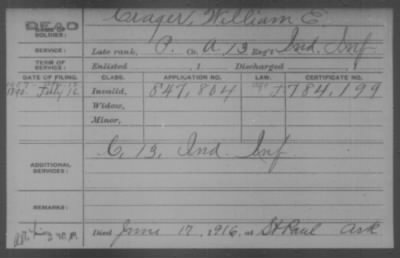 DEAD
Crager, William E.
NAME OF SOLDIER:
SERVICE: Late rank, P. Co. A, 13 Reg't Ind. Inf
TERM OF SERVICE: Enlisted , 1 Discharged
DATE OF FILING. CLASS. APPLICATION NO. LAW. CERTIFICATE NO.
1890. July 12 Invalid, 847,804 784,199
Widow,
Minor,
C, 13, Ind. Inf
ADDITIONAL SERVICES:
REMARKS:
Died June 17, 1916, at St Paul Ark